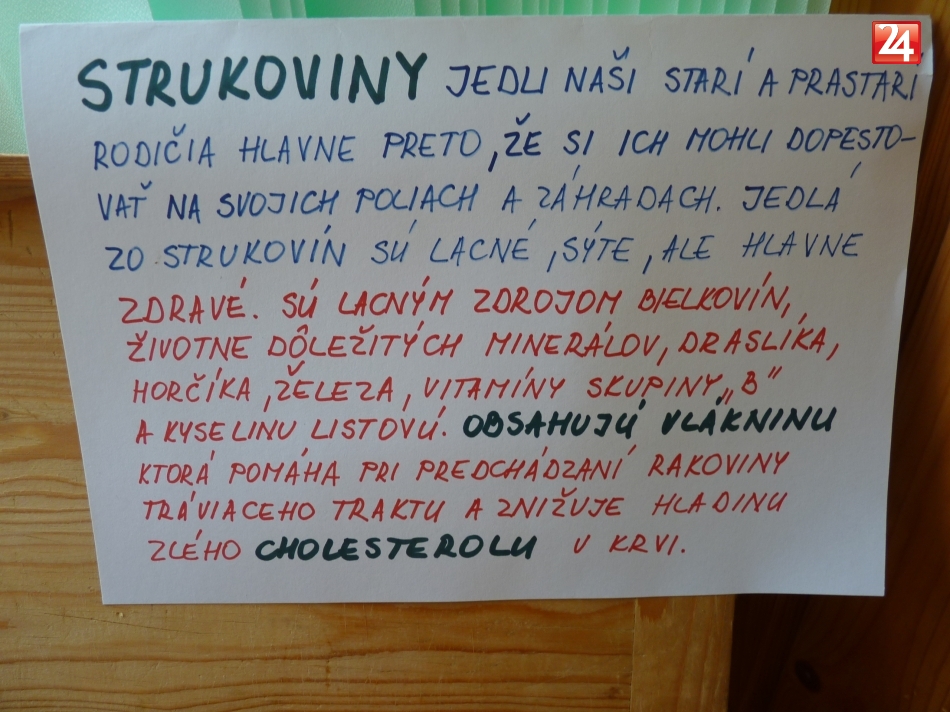 24
STRUKOVINY JEDLI NAŠI STARÍ A PRASTARÍ
RODIČIA HLAVNE PRETO, ŽE SI ICH MOHLI DOPESTO-
VAŤ NA SVOJICH POLIACH A ZÁHRADACH. JEDLÁ
ZO STRUKOVÍN SÚ LACNÉ, SÝTE, ALE HLAVNE
ZDRAVÉ. SÚ LACNÝM ZDROJOM BIELKOVÍN,
ŽIVOTNE DÔLEŽITÝCH MINERÁLOV, DRASLÍKA,
HORČÍKA, ŽELEZA, VITAMÍNY SKUPINY „B"
A KYSELINU LISTOVÚ. OBSAHUJÚ VLÁKNINU
KTORÁ POMÁHA PRI PREDCHÁDZANÍ RAKOVINY
TRÁVIACEHO TRAKTU A ZNIŽUJE HLADINU
ZLÉHO CHOLESTEROLU V KRVI.